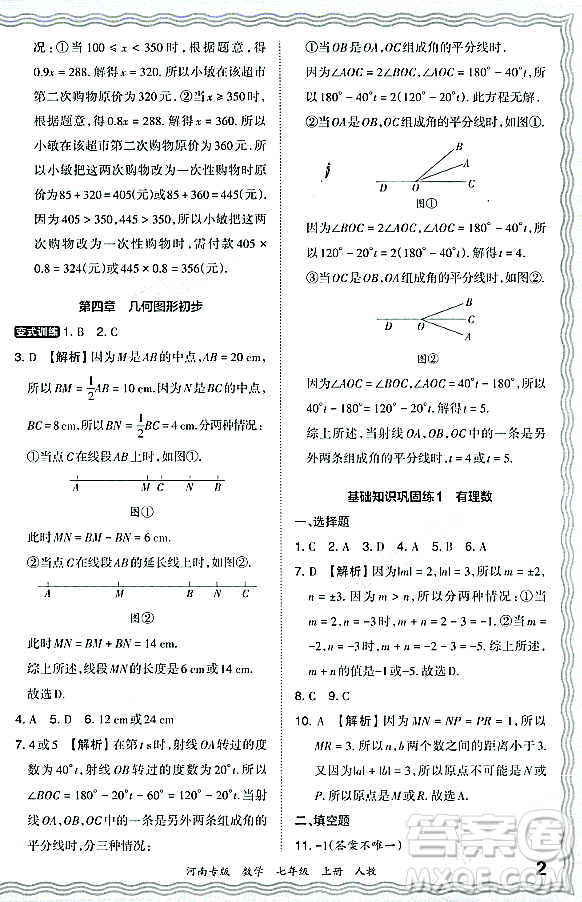 况：①当 100 ≤ x < 350 时，根据题意，得
0.9x = 288. 解得 x = 320. 所以小敏在该超市
第二次购物原价为 320 元；②当 x ≥ 350 时，
根据题意，得 0.8x = 288. 解得 x = 360. 所以
小敏在该超市第二次购物原价为 360 元. 所
以小敏在这两次购物中，购买商品的总原价
为 85 + 320 = 405(元)或 85 + 360 = 445(元).
因为 405 > 350,445 > 350,所以若小敏一次
性购买这两次购买的物品，则需付款 405 ×
0.8 = 324(元)或 445 × 0.8 = 356(元).
第四章 几何图形初步
变式训练 1. B 2. C
3. D 【解析】因为 M 是 AB 的中点，AB = 20 cm，
所以 BM = 1/2 AB = 10 cm. 因为 N 是 BC 的中点，
BC = 8 cm，所以 BN = 1/2 BC = 4 cm. 分两种情况：
①当点 C 在线段 AB 上时，如图①.
A M C N B
图①
此时 MN = BM - BN = 6 cm；
②当点 C 在 AB 的延长线上时，如图②.
A M B N C
图②
此时 MN = BM + BN = 14 cm.
综上所述，MN 的长度是 6 cm 或 14 cm.
故选 D.
4. A 5. D 6. 12 cm 或 24 cm
7. 4 或 5 【解析】在第 t s 时，射线 OA 转过的度
数为 40°t，射线 OB 转过的度数为 20°t，所以
∠BOC = 180° - 20°t - 60° = 120° - 20°t.
当射线 OA，OB，OC 中的一条是另外两条组成角的
平分线时，分三种情况：
①当 OB 是 OA，OC 组成角的平分线时，
因为∠AOC = 2∠BOC，∠AOC = 180° - 40°t，
所以 180° - 40°t = 2(120° - 20°t). 此方程无解.
②当 OA 是 OB，OC 组成角的平分线时，如图①.
B
A
D O C
图①
因为∠BOC = 2∠AOC，∠AOC = 180° - 40°t，
所以 120° - 20°t = 2(180° - 40°t). 解得 t = 4.
③当 OC 是 OA，OB 组成角的平分线时，如图②.
B
D O C
A
图②
因为∠AOC = ∠BOC，∠AOC = 40°t - 180°，所以
40°t - 180° = 120° - 20°t. 解得 t = 5.
综上所述，当射线 OA，OB，OC 中的一条是另
外两条组成角的平分线时，t = 4 或 5.
基础知识巩固练 1 有理数
一、选择题
1. C 2. A 3. D 4. A 5. C 6. A
7. D 【解析】因为|m| = 2,|n| = 3,所以 m = ±2，
n = ±3. 因为 m > n，所以分两种情况：①当
m = 2，n = -3 时，m - n = 5；②当 m = -2，
n = -3 时，m - n = 1. 综上所述，m - n = 5 或 1.
故选 D.
8. C 9. C
10. A 【解析】因为 MN = NP = PR = 1，所以
MR = 3. 所以 a，b 两个数之间的距离小于 3. 因为
|a| + |b| = 3，所以原点是点 M 或点 R. 故选 A.
二、填空题
11. -1(答案不唯一)
河南专版 数学 七年级 上册 人教
2
答案圈
MXQE.COM